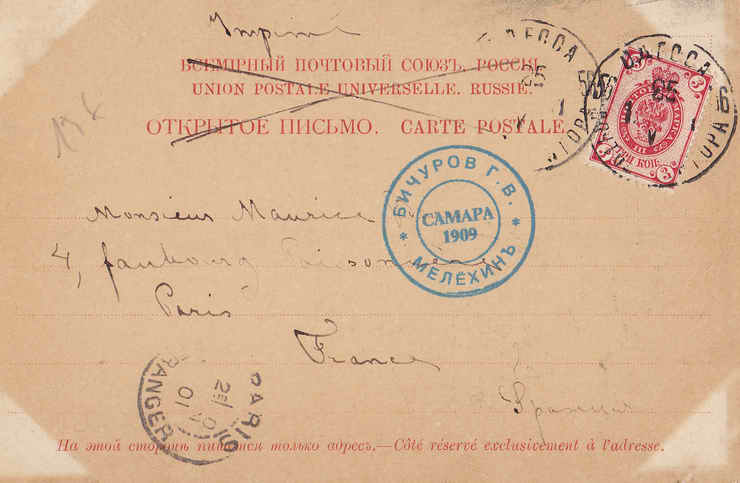 Imprimé
ВСЕМІРНЫЙ ПОЧТОВЫЙ СОЮЗЪ. РОССІЯ
UNION POSTALE UNIVERSELLE. RUSSIE.
ОТКРЫТОЕ ПИСЬМО. CARTE POSTALE
ОДЕССА
ОДЕССА
65
65
3
3
3 КОП.
БИЧУРОВ Г. В.
САМАРА
1909
* МЕЛЕХИНЪ *
Monsieur Maurice
4, faubourg Poissonnière
Paris
France
PARIS
ETRANGER
01
На этой сторонѣ пишется только адресъ.—Côté réservé exclusivement à l'adresse.